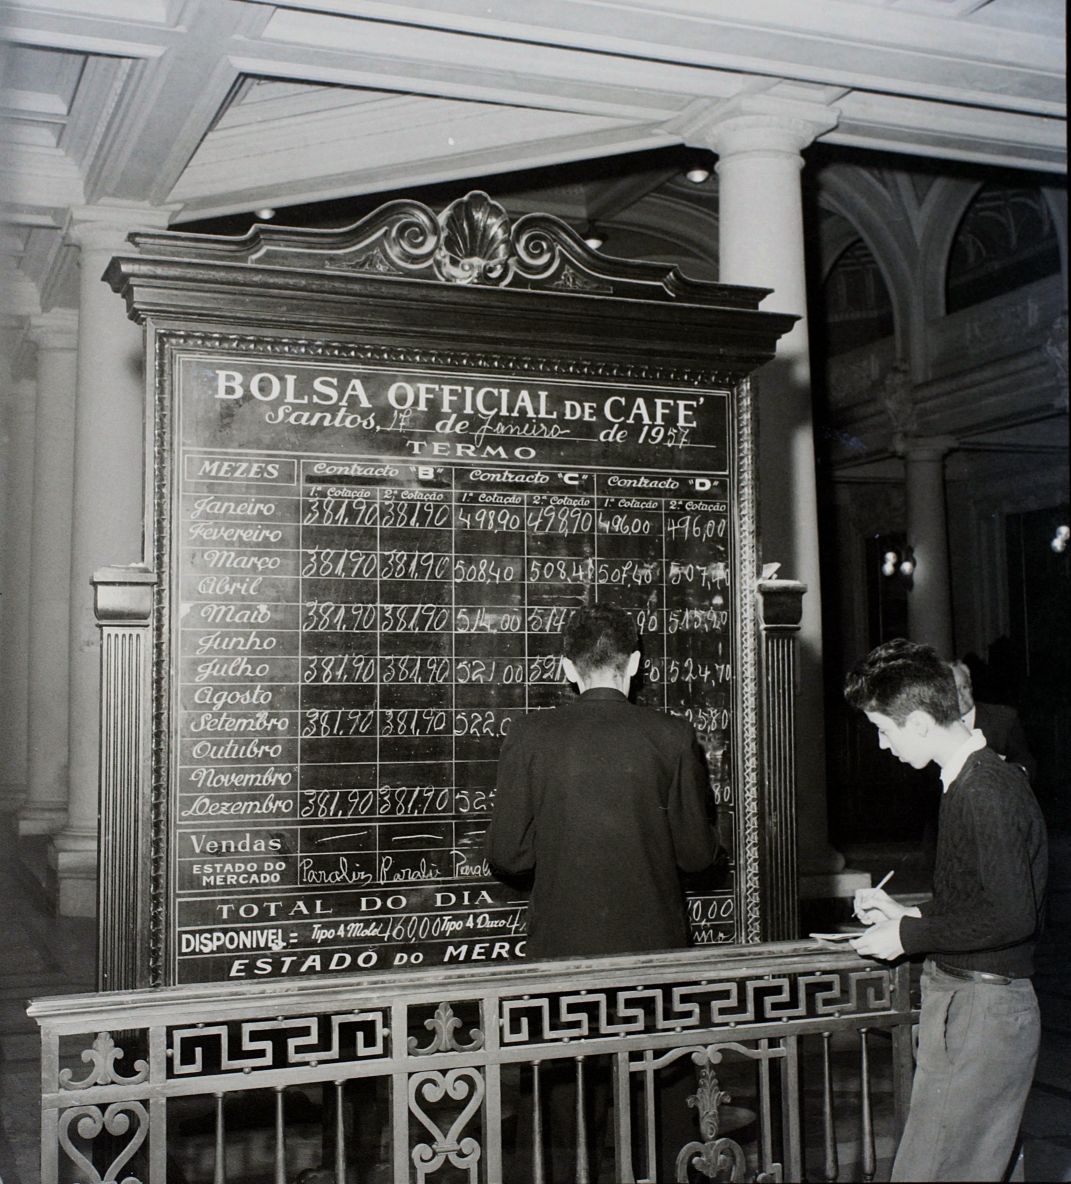 BOLSA OFFICIAL DE CAFE'
Santos, 17 de Janeiro de 1957
TERMO
MEZES Contracto "B" Contracto "C" Contracto "D"
1.ª Cotação 2.ª Cotação 1.ª Cotação 2.ª Cotação 1.ª Cotação 2.ª Cotação
Janeiro 381,90 381,90 498,90 498,90 496,00 496,00
Fevereiro
Março 381,90 381,90 508,40 508,4 507,40 507,40
Abril
Maio 381,90 381,90 514,00 514 90 515,90
Junho
Julho 381,90 381,90 521,00 521 524,70
Agosto
Setembro 381,90 381,90 522,0 25,80
Outubro
Novembro
Dezembro 381,90 381,90 525 80
Vendas — — —
ESTADO DO MERCADO Paraliz Paraliz Paraliz
TOTAL DO DIA
DISPONIVEL = Tipo 4 Mole 460,00 Tipo 4 Duro 0,00
ESTADO DO MERC